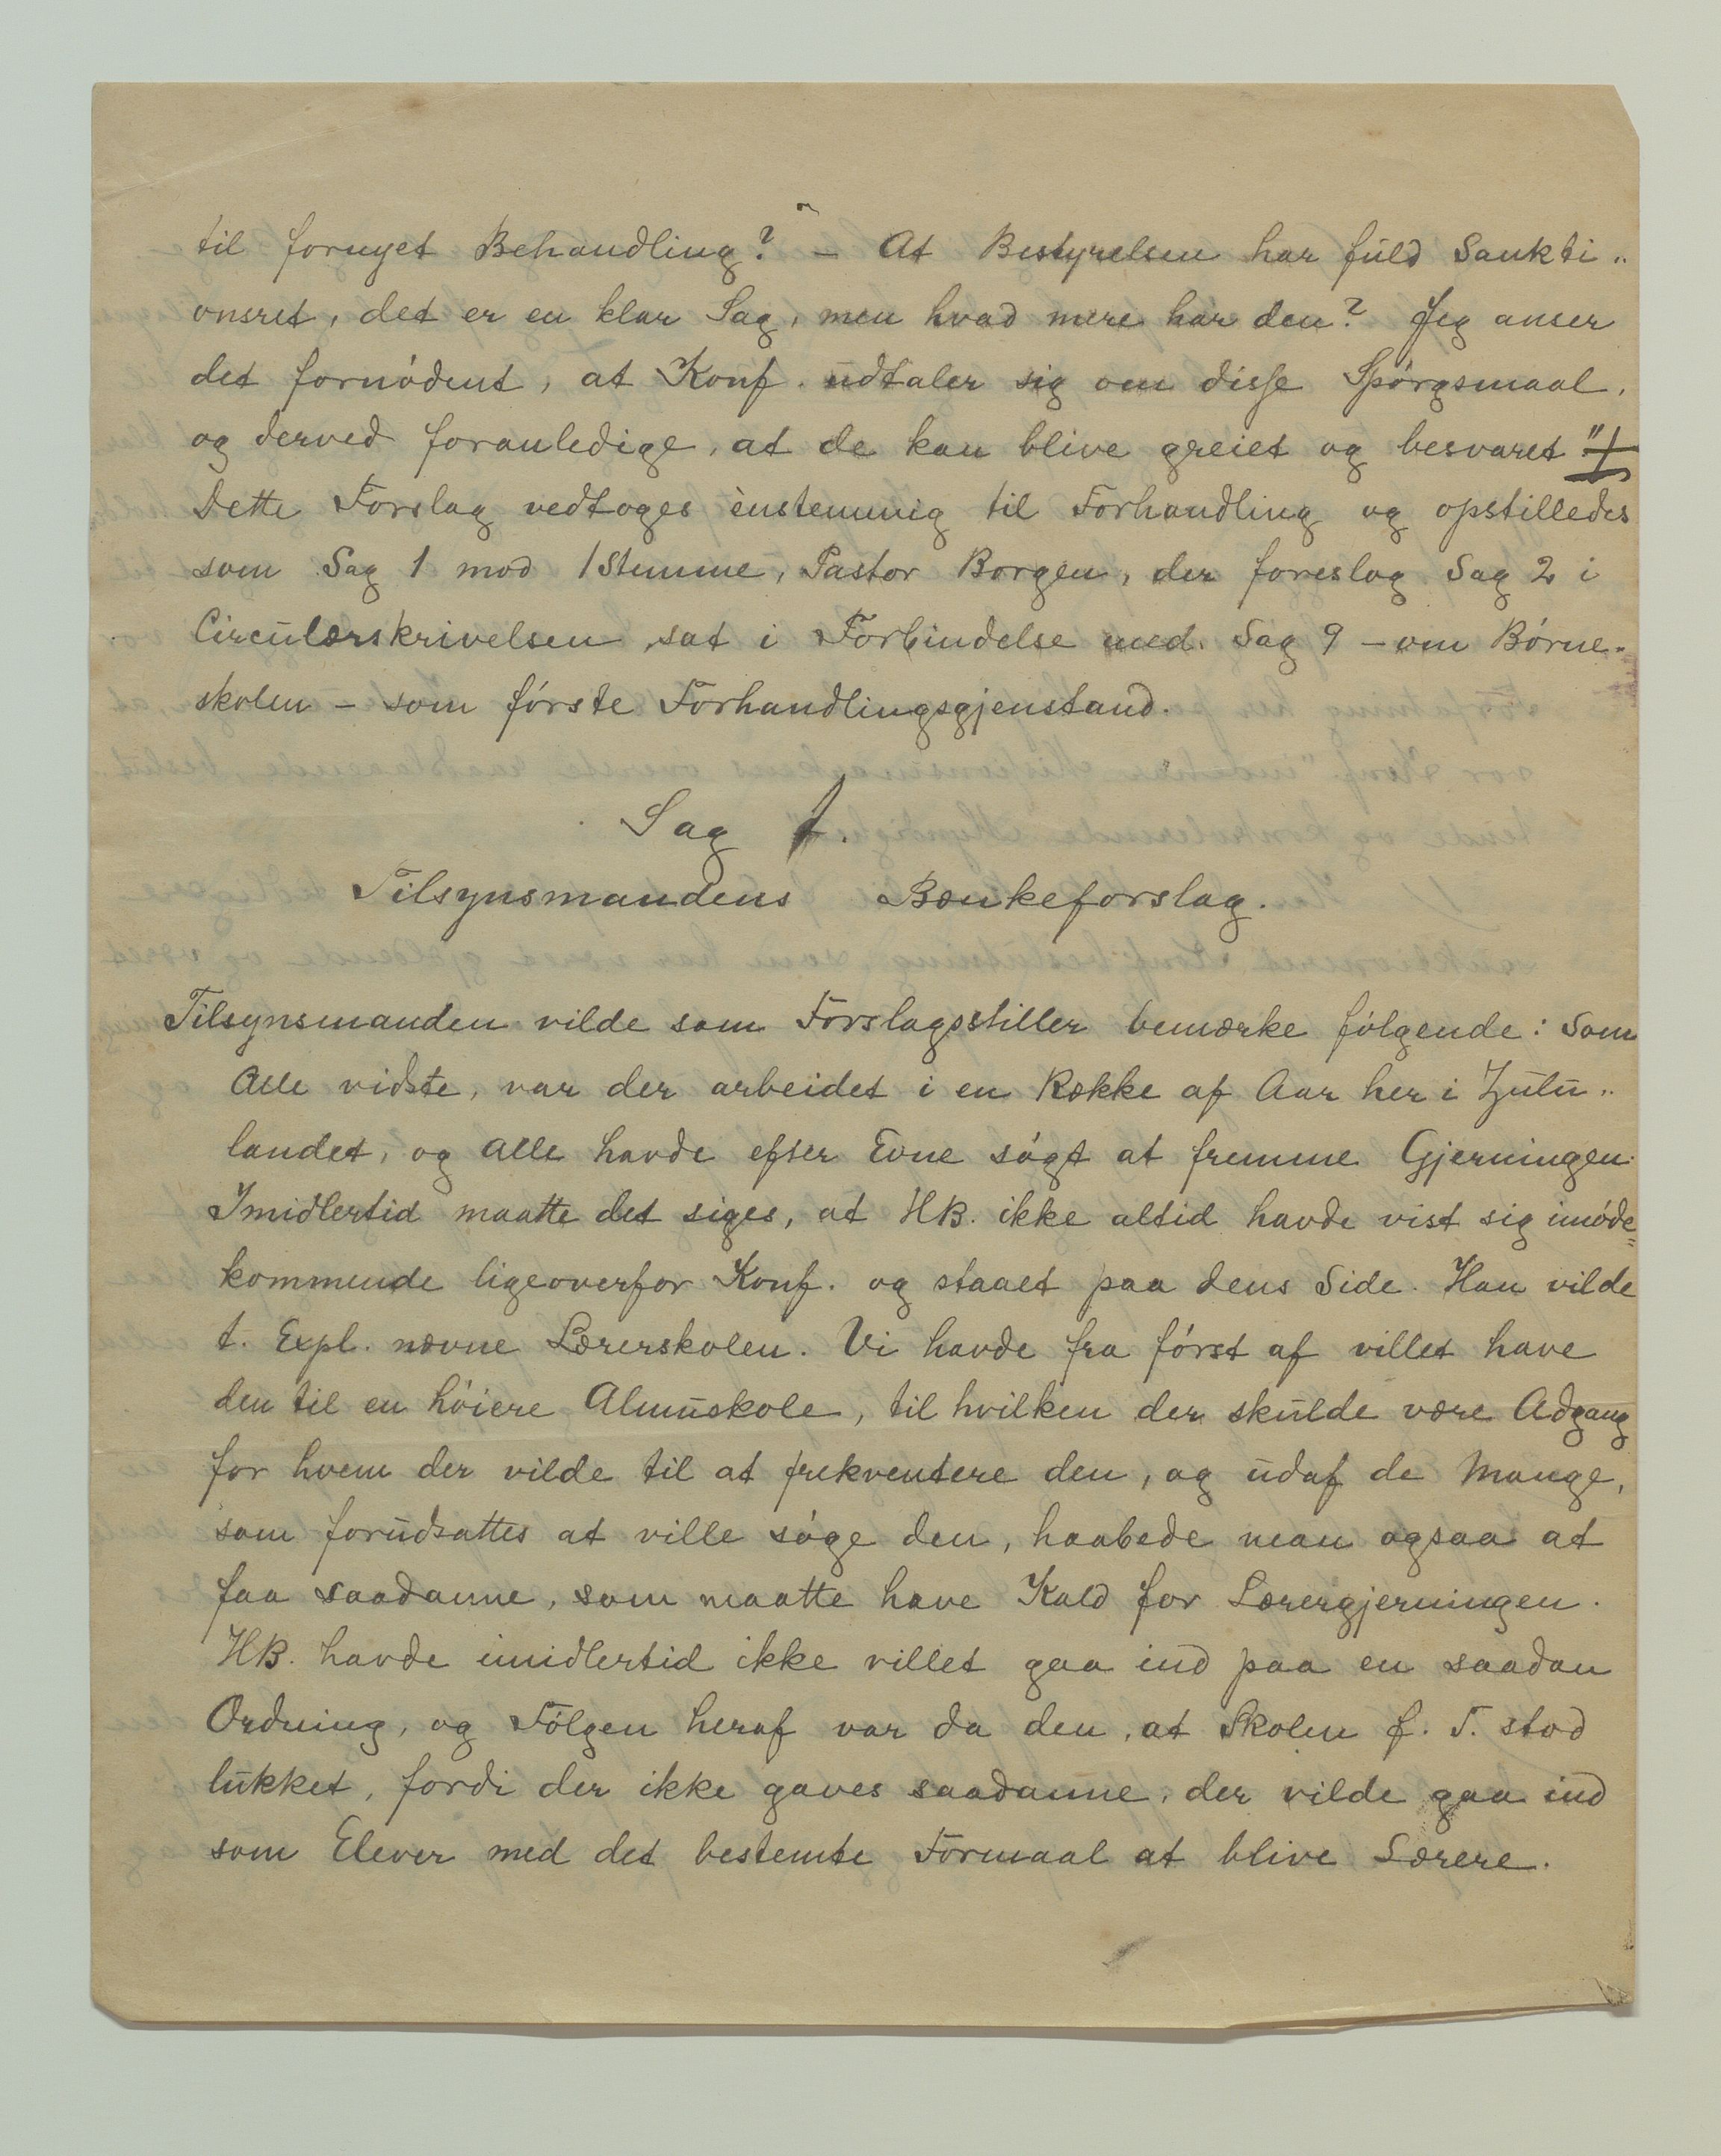 til fornyet Behandling? - At Bestyrelsen har fuld Sankti„
onsret, det er en klar Sag, men hvad mere har den? Jeg anser
det fornødent, at Konf. udtaler sig om disse Spørgsmaal,
og derved foranledige, at de kan blive greiet og besvaret"
Dette Forslag vedtoges énstemmig til Forhandling og opstilledes
som Sag 1 mod 1 Stemme, Pastor Borgen, der foreslog Sag 2 i
Circulærskrivelsen, sat i Forbindelse med Sag 9 - om Børne-
skolen - som første Forhandlingsgjenstand.
Sag 1.
Tilsynsmandens Bænkeforslag.
Tilsynsmanden vilde som Forslagsstiller bemærke følgende: Som
Alle vidste, var der arbeidet i en Række af Aar her i Zulu„
landet, og Alle havde efter Evne søgt at fremme Gjerningen.
Imidlertid maatte det siges, at HB. ikke altid havde vist sig imøde=
kommende ligeoverfor Konf. og staaet paa dens Side. Han vilde
t. Expl. nævne Lærerskolen. Vi havde fra først af villet have
den til en høiere Almuskole, til hvilken der skulde være Adgang
for hvem der vilde til at frekventere den, og udaf de Mange,
som forudsattes at ville søge den, haabede man ogsaa at
faa saadanne, som maatte have Kald for Lærergjerningen.
HB. havde imidlertid ikke villet gaa ind paa en saadan
Ordning, og Følgen heraf var da den, at Skolen f. T. stod
lukket, fordi der ikke gaves saadanne, der vilde gaa ind
som Elever med det bestemte Formaal at blive Lærere.